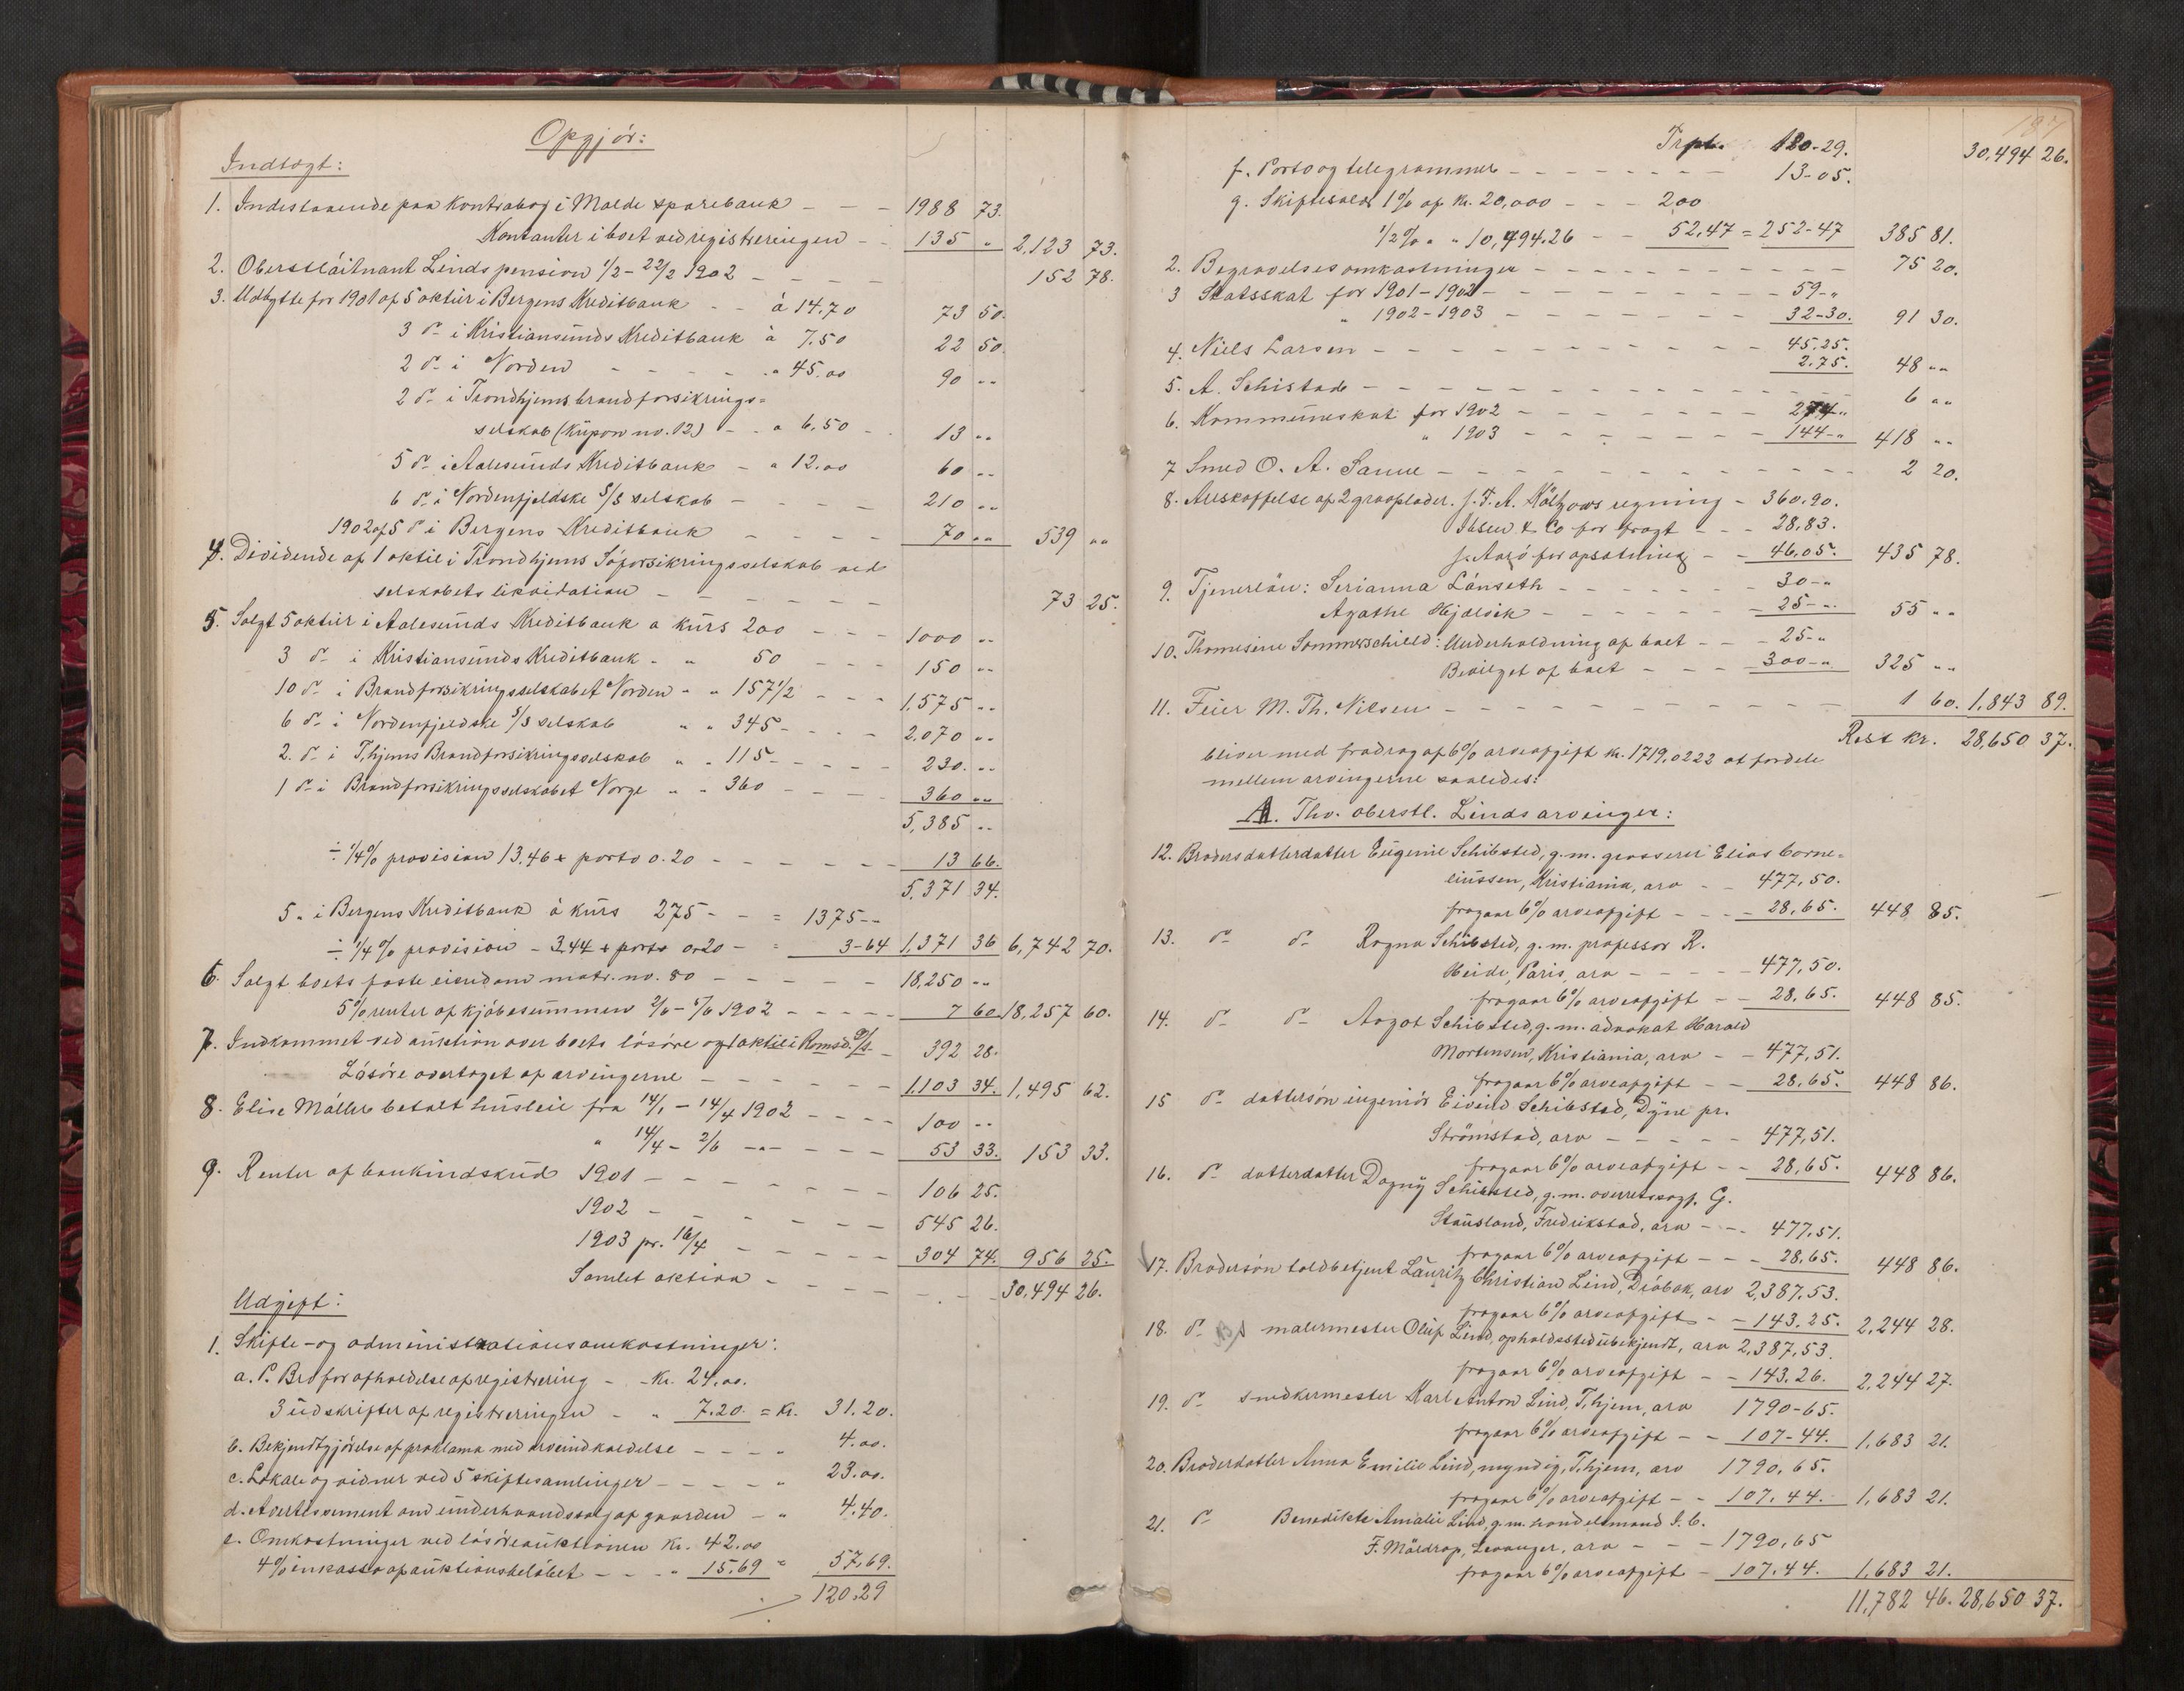 Opgjör:
Indtægt:
1. Indestaaende paa Kontrabog i Molde sparebank - - - 1988 73.
Kontanter i boet ved registreringen - - 135 „ 2,123 73.
2. Oberstlöitnant Linds pension 1/2 - 22/2 1902 - - - - 152 78.
3. Udbytte for 1901 af 5 aktier i Bergens Kreditbank - - à 14.70 73 50.
3 do i Kristiansunds Kreditbank à 7.50 22 50
2 do i Norden - - - - - „ 45.00 90 „„
2 do i Trondhjems brandforsikrings=
selskab (Kupon no. 12) - - a 6.50 - 13 „„
5 do i Aalesunds Kreditbank - „ 12.00 60 „„
6 do i Nordenfjeldske S/S selskab - - - - 210 „„
1902 af 5 do i Bergens Kreditbank - - - - 70 „„ 539 „„
4. Dividende af 1 aktie i Trondhjems Söforsikringsselskab ved
selskabets likvidation - - - - - - 73 25.
5. Solgt 5 aktier i Aalesunds Kreditbank a kurs 200 - - - 1000 „„
3 do i Kristiansunds Kreditbank - „ 50 - - - 150 „„
10 do i Brandforsikringsselskabet Norden „ „ 157 1/2 - - - 1,575 „„
6 do i Nordenfjeldske S/S selskab „ „ 345 - - - - 2,070 „„
2. do i T,hjems Brandforsikringsselskab „ „ 115 - - - - - 230. „„
1 do i Brandforsikringsselskabet Norge „ „ 360 - - - - 360 „„
5,385 „„
÷ 1/4% provision 13.46 + porto 0.20 - - - - - - 13 66.
5,371 34.
5 „ i Bergens Kreditbank à kurs 275 - - = 1375 - -
÷ 1/4% provision - 3,44 + porto 0.20 - = 3-64 1,371 36 6,742 70.
6. Solgt boets faste eiendom matr. no. 80 - - - - - 18,250 „„
5% renter af kjöbesummen 2/6 - 5/6 1902 - - - - - 7 60 18,257 60.
7. Indkommet ved auktion over boets lösöre og 1 aktie i Romsd. - 392 28.
Lösöre overtaget af arvingerne - - - - - - 1,103 34. 1,495 62.
8. Elise Möller betalt husleie fra 14/1 - 14/4 1902 - - - - 100 „„
„ 14/4 - 2/6 - „ - - - - 53 33. 153 33.
9. Renter af bankindskud 1901 - - - - - - - 106 25.
1902 - - - - - - - 545 26.
1903 pr. 16/4 - - - - - 304 74. 956 25.
Samlet aktiva - - - - - - 30,494 26.
Udgift:
1. Skifte- og administrationsomkostninger:
a. P. Bro for afholdelse af registrering - - Kr. 24.00.
3 udskrifter af registreringen - „ 7.20. = Kr. 31.20.
b. Bekjendtgjörelse af proklama med arveindkaldelse - - - „ 4.00.
c. Lokale og vidner ved 5 skiftesamlinger - - - - „ 23.00.
d. Avertissement om underhaandssalg af gaarden - „ 4.40.
e. Omkostninger ved lösöreauktionen Kr. 42.00
4% inkasso af auktionsbelöbet - - - „ 15.69 „ 57.69.
120.29
187
Trpt. 120-29. 30,494 26.
f. Porto og telegrammer - - - - - - - - 13-05.
g. Skiftesalær 1% af Kr. 20,000 - - - 200
1/2% „ „ 10,494.26 - - 52.47 = 252-47 385 81.
2. Begravelsesomkostninger - - - - - - - - - - - 75 20.
3 Statsskat for 1901-1902 - - - - - - - - - - 59-„
„ 1902-1903 - - - - - - - 32-30. 91 30.
4. Niels Larsen - - - - - - - - - - - - 45.25.
2.75. 48 „„
5. A. Schistad - - - - - - - - - - - - 6 „„
6. Kommuneskat for 1902 - - - - - - - 274„
„ 1903 - - - - - - - 144-„ 418 „„
7 Smed O. A. Sanne - - - - - - - - - - - - 2 20.
8. Anskaffelse af 2 gravplader. J. F. A. Höltzows regning - 360.90.
Ibsen & Co for fragt - - - 28.83.
J. Aarö for opsætning - - 46.05. 435 78.
9. Tjenerlön: Serianna Lönseth - - - - - - - 30-„
Agathe Hjelvik - - - - - - 25-„ 55 „„
10. Thomisine Sommerschield: Underholdning af boet - - - 25-„
Bevilget af boet - - - - 300-„ 325 „„
11. Feier M. Th. Nilsen - - - - - - - - - - - 1 60. 1,843 89.
Rest kr. 28,650 37.
bliver med fradrag af 6% arveafgift kr. 1719,0222 at fordele
mellem arvingerne saaledes:
A. Thv. oberstl. Linds arvinger:
12. Brodersdatterdatter Eugenie Schibsted, g. m. grosserer Elias Corne=
liussen, Kristiania, arv - - 477,50.
fragaar 6% arveafgift - - - - 28,65. 448 85.
13. do do Ragna Schibsted, g. m. professor R.
Heide, Paris, arv - - - - - 477,50.
fragaar 6% arveafgift - - 28,65. 448 85.
14. do do Aagot Schibsted, g. m. advokat Harald
Mortensen, Kristiania, arv - - 477,51.
fragaar 6% arveafgift - - 28,65. 448 86.
15 do dattersön ingeniör Eivind Schibsted, Dyne pr.
Strömstad, arv - - - - - 477,51.
fragaar 6% arveafgift - - 28,65. 448 86.
16. do datterdatter Dagny Schibsted, g. m. overretssagf. G.
Stausland, Fredrikstad, arv - - - 477,51.
fragaar 6% arveafgift - - - 28,65. 448 86.
17. Brodersön toldbetjent Lauritz Christian Lind, Dröbak, arv 2,387,53.
fragaar 6% arveafgift - - 143.25. 2,244 28.
18. do malermester Oluf Lind, opholdssted ubekjendt, arv 2,387,53.
fragaar 6% arveafgift - - 143.26. 2,244 27.
19. do snedkermester Karl Anton Lind, T,hjem, arv 1790-65.
fragaar 6% arveafgift - - 107-44. 1,683 21.
20. Broderdatter Anna Emilie Lind, myndig, T,hjem, arv 1790,65.
fragaar 6% arveafgift - - 107.44. 1,683 21.
21. do Benedikte Amalie Lind, g. m. handelsmand I. C.
F. Möldrop, Levanger, arv - - - 1790,65
fragaar 6% arveafgift - 107.44. 1,683 21.
11,782 46. 28,650 37.